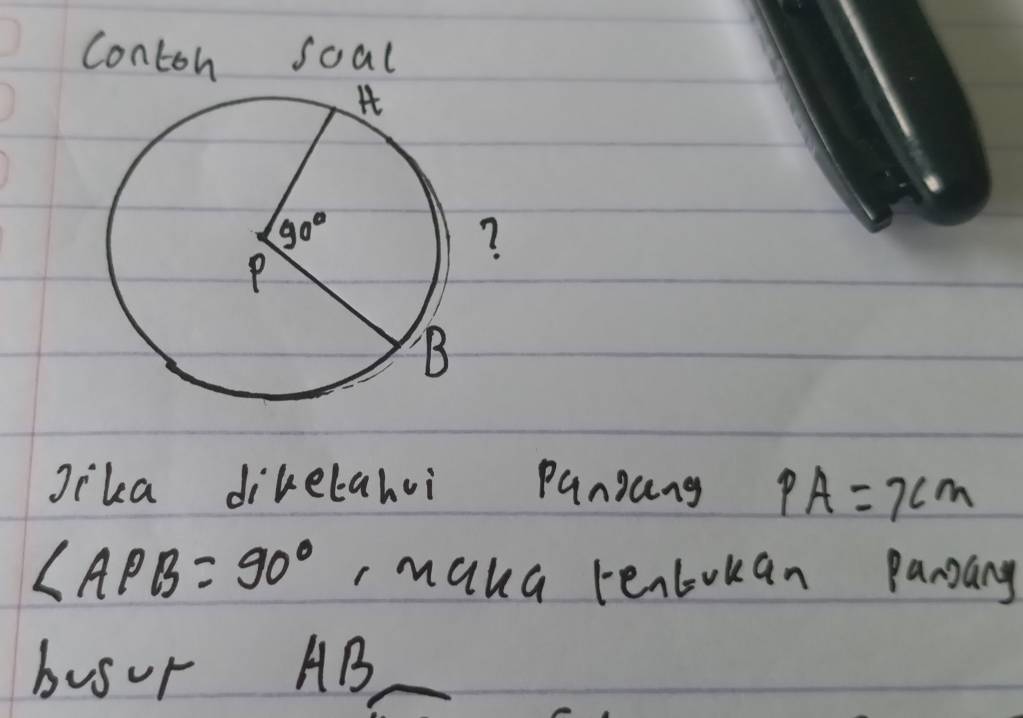 Contoh soal
A
90°
?
P
B
Jika diketahui Panjang PA = 7cm
∠APB = 90°, maka tentukan Panjang
busur AB